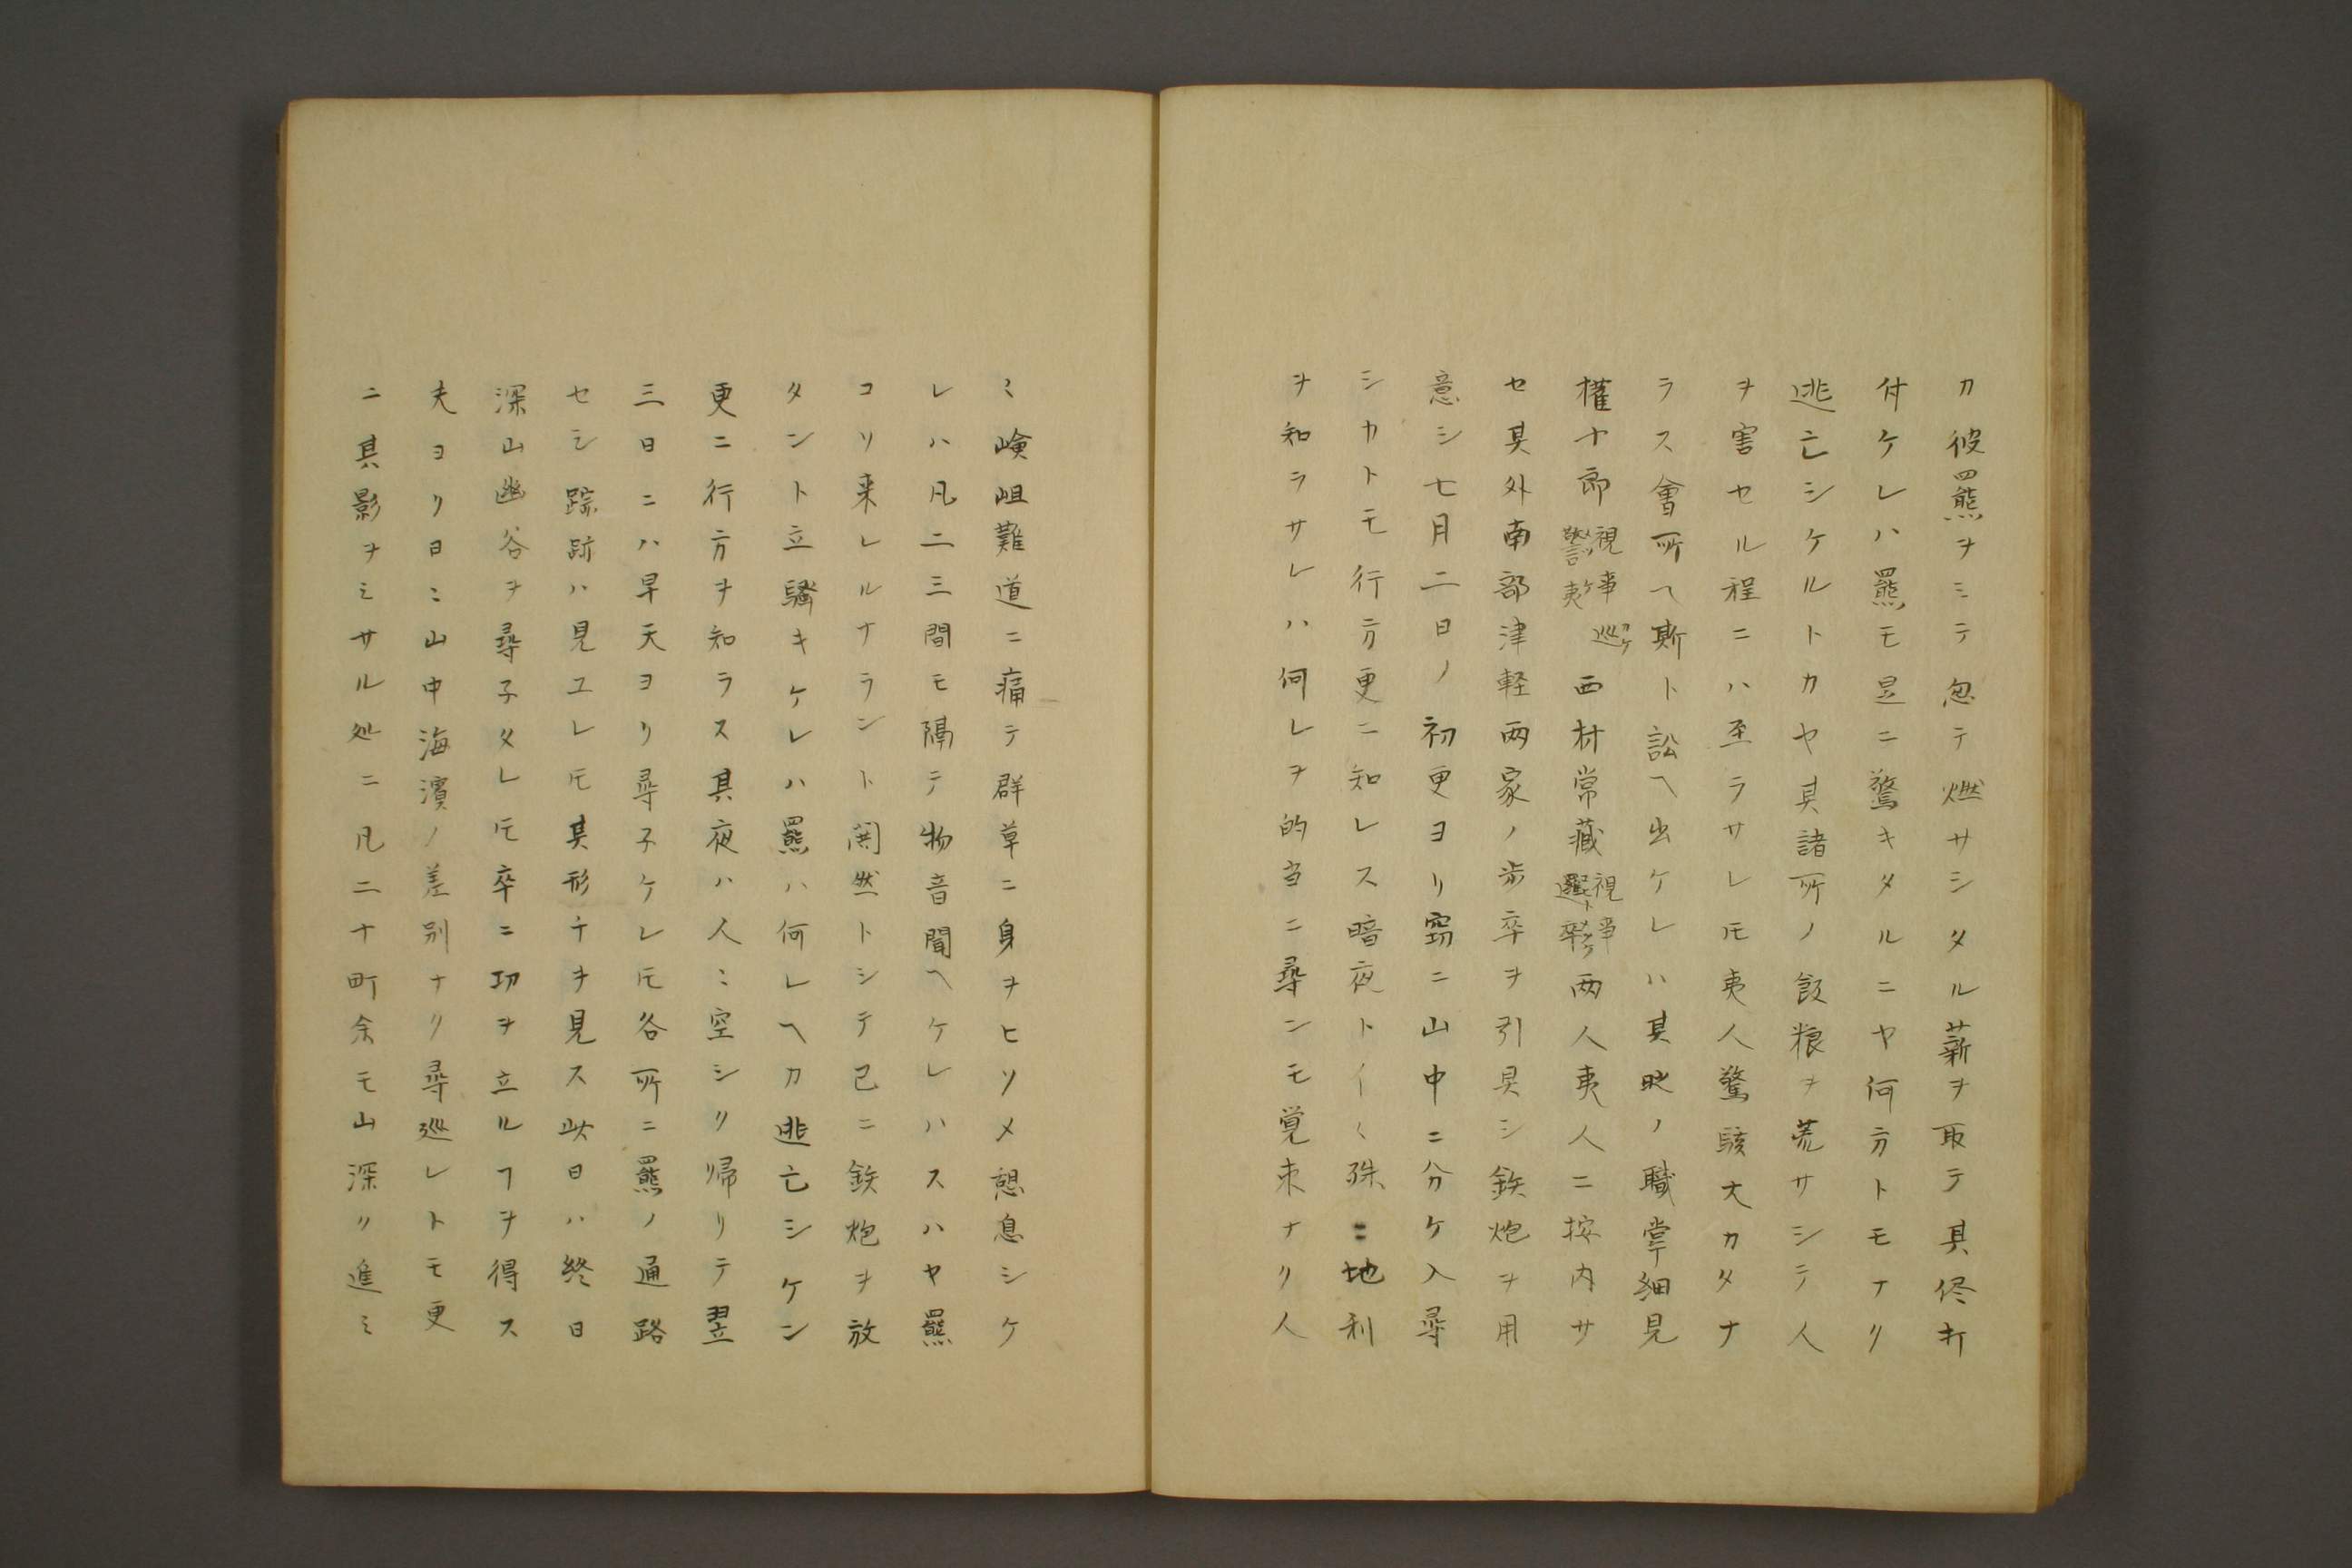 カ彼羆ヲミテ忽テ燃サシタル薪ヲ取テ其侭打
付ケレハ羆モ是ニ驚キタルニヤ何方トモナク
逃亡シケルトカヤ其諸所ノ飯粮ヲ荒サシテ人
ヲ害セル程ニハ至ラサレ𪜈夷人驚駭大カタナ
ラス會所ヘ斯ト訟ヘ出ケレハ其 ノ職掌細見
權十郎 西村常藏 両人夷人ニ按内サ
セ其外南部津軽両家ノ歩卒ヲ引具シ鉄炮ヲ用
意シ七月二日ノ初更ヨリ窃ニ山中ニ分ケ入尋
シカトモ行方更ニ知レス暗夜トイヽ殊ニ地利
ヲ知ラサレハ何レヲ的当ニ尋ンモ覚束ナク人
ミ嶮岨難道ニ痛テ群草ニ身ヲヒソメ憩息シケ
レハ凡二三間モ隔テ物音聞ヘケレハスハヤ羆
コソ来レルナラント 然トシテ已ニ鉄炮ヲ放
タント立騒キケレハ羆ハ何レヘカ逃亡シケン
更ニ行方ヲ知ラス其夜ハ人ミ空シク帰リテ翌
三日ニハ早天ヨリ尋子ケレ𪜈各所ニ羆ノ通路
セシ踪跡ハ見ユレ𪜈其形チヲ見ス此日ハ終日
深山幽谷ヲ尋子タレ𪜈卒ニ功ヲ立ルヿヲ得ス
夫ヨリ日ミ山中海濱ノ差別ナク尋廻レトモ更
ニ其影ヲミサル処ニ凡二十町余モ山深ク進ミ